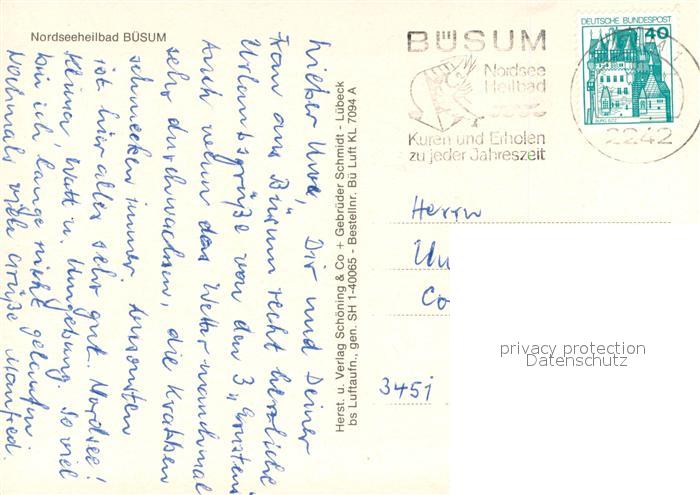 Nordseeheilbad BÜSUM
BÜSUM
Nordsee
Heilbad
Kuren und Erholen
zu jeder Jahreszeit
DEUTSCHE BUNDESPOST
40
BURG ELTZ
2242
Lieber Uwe, Dir und Deiner
Frau aus Büsum recht herzliche
Urlaubsgrüße von den 3 „Ernsten“
Auch wenn das Wetter manchmal
sehr durchwachsen, die Krabben
schmecken immer. Ansonsten
ist hier alles sehr gut. Nordsee!
Klima Watt u. Umgebung. So viel
bin ich lange nicht gelaufen.
Nochmals viele Grüße Manfred.
Herst. u. Verlag Schöning & Co + Gebrüder Schmidt - Lübeck
bs Luftaufn., gen. SH 1-40065 - Bestellnr. Bü Luft KL 7094 A
Herrn
3451
privacy protection
Datenschutz